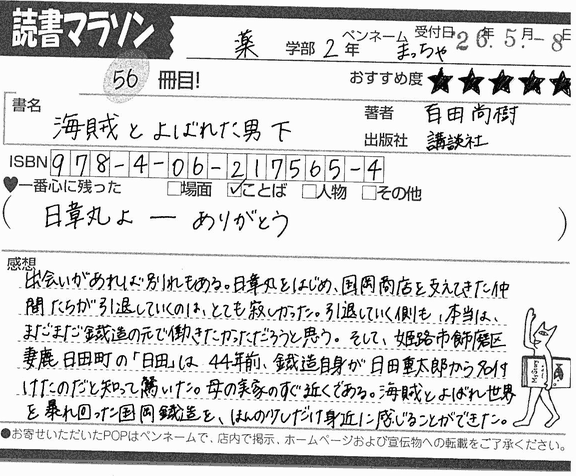 読書マラソン
薬 学部 2 年 ペンネーム まっちゃ 受付日 '26年 5.月-8日
56 冊目! おすすめ度 ★★★★★
書名 海賊とよばれた男 下
著者 百田尚樹
出版社 講談社
ISBN 978-4-06-217565-4
♥一番心に残った □場面 ☑ことば □人物 □その他
( 日章丸よ ― ありがとう )
感想
出会いがあれば別れもある。日章丸をはじめ、国岡商店を支えてきた仲
間たちが引退していくのは、とても寂しかった。引退していく側も、本当は、
まだまだ鐵造の元で働きたかっただろうと思う。そして、姫路市飾磨区
妻鹿日田町の「日田」は、44年前、鐵造自身が日田重太郎から名付
けたのだと知って驚いた。母の実家のすぐ近くである。海賊とよばれ世界
を暴れ回った国岡鐵造を、ほんの少しだけ身近に感じることができた。
●お寄せいただいたPOPはペンネームで、店内で掲示、ホームページおよび宣伝物への転載をご了承ください。